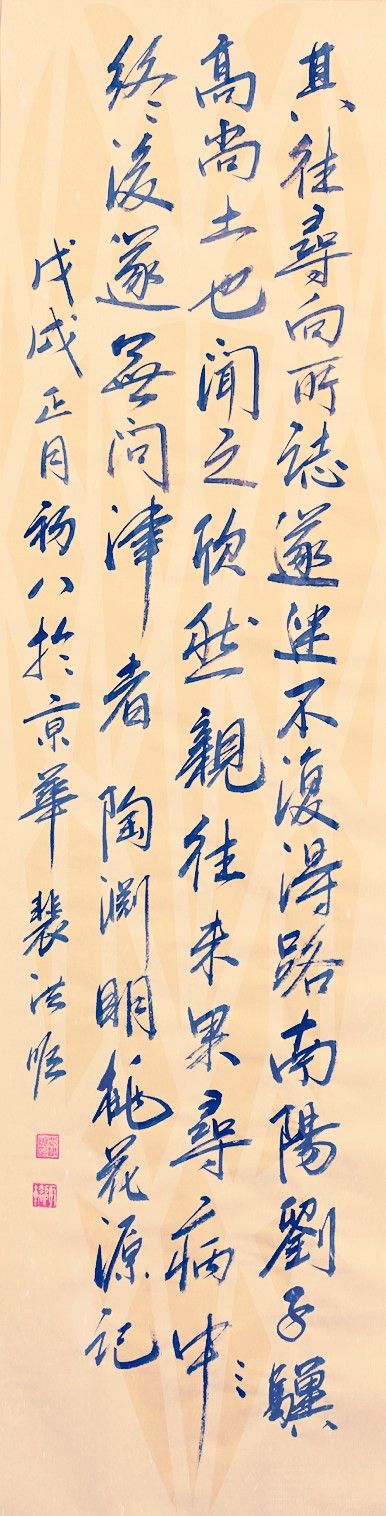 其往尋向所誌遂迷不復得路南陽劉子驥
高尚士也聞之欣然親往未果尋病中
終後遂無問津者陶淵明桃花源記
戊戌正月初八於京華裴洪順